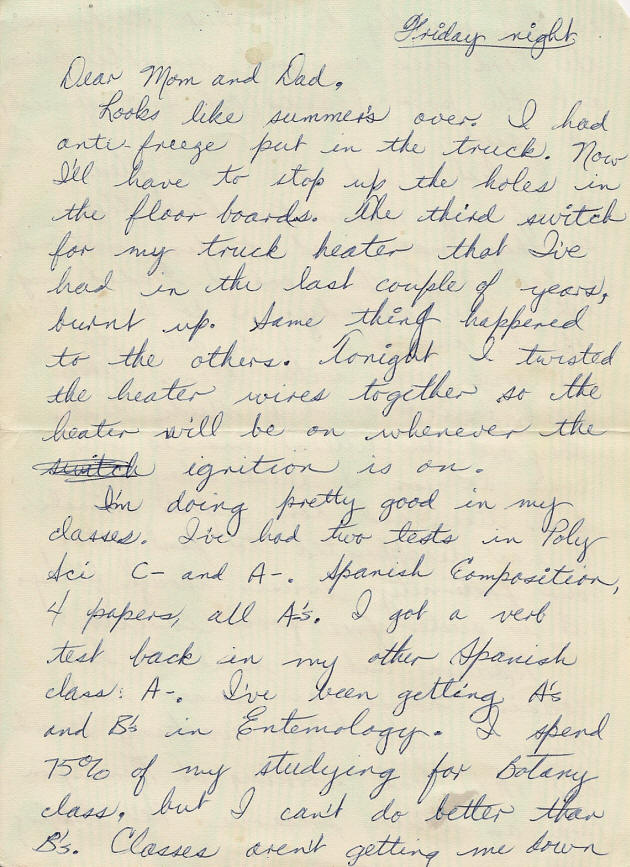 Friday night
Dear Mom and Dad,
Looks like summer's over. I had
anti-freeze put in the truck. Now
I'll have to stop up the holes in
the floor boards. The third switch
for my truck heater that I've
had in the last couple of years,
burnt up. Same thing happened
to the others. Tonight I twisted
the heater wires together so the
heater will be on whenever the
switch ignition is on.
I'm doing pretty good in my
classes. I've had two tests in Poly
Sci C- and A-. Spanish Composition,
4 papers, all A's. I got a verb
test back in my other Spanish
class: A-. I've been getting A's
and B's in Entemology. I spend
75% of my studying for Botany
class, but I can't do better than
B's. Classes aren't getting me down